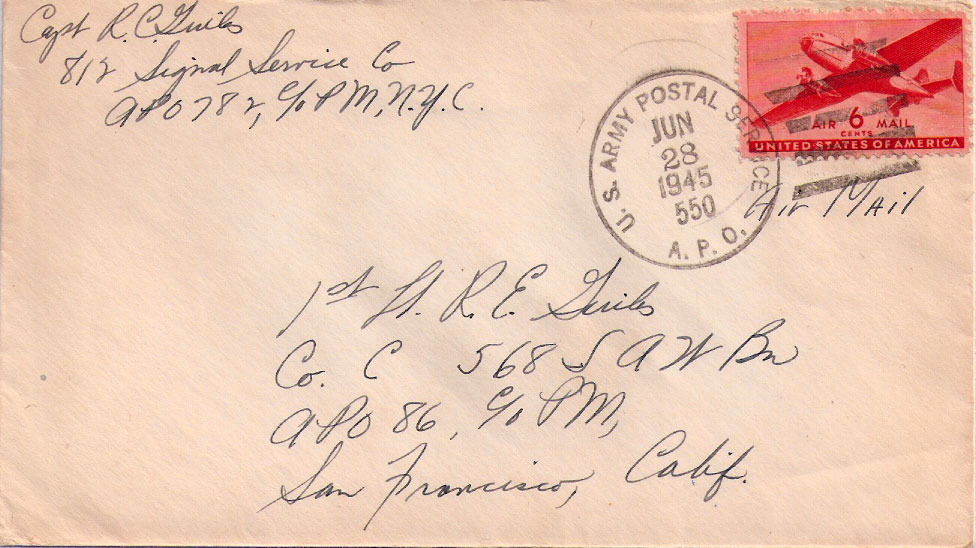 Capt R. C. Guiles
812 Signal Service Co
APO 782, c/o PM, N.Y.C.
U. S. ARMY POSTAL SERVICE
JUN
28
1945
550
A. P. O.
AIR 6 MAIL
CENTS
UNITED STATES OF AMERICA
Air Mail
1st Lt. R. E. Guiles
Co. C 568 S A W Bn
APO 86, c/o PM,
San Francisco, Calif.